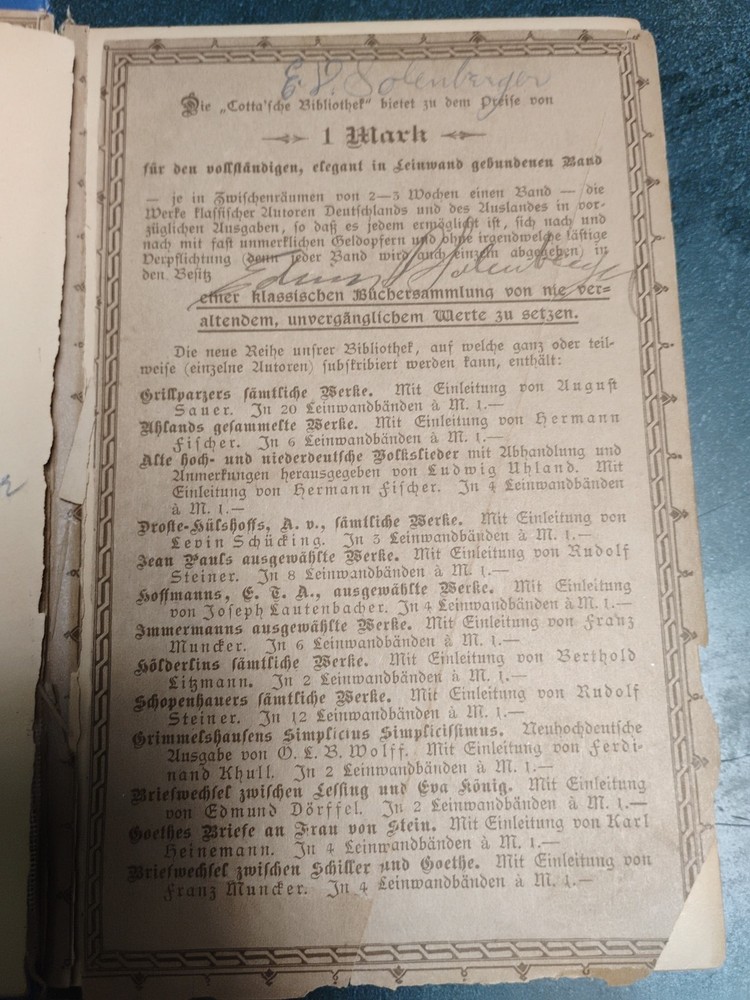 E. V. Solenberger
Die „Cotta'sche Bibliothek“ bietet zu dem Preise von
1 Mark
für den vollständigen, elegant in Leinwand gebundenen Band
— je in Zwischenräumen von 2—3 Wochen einen Band — die
Werke klassischer Autoren Deutschlands und des Auslandes in vor-
züglichen Ausgaben, so daß es jedem ermöglicht ist, sich nach und
nach mit fast unmerklichen Geldopfern und ohne irgendwelche lästige
Verpflichtung (denn jeder Band wird auch einzeln abgegeben) in
den Besitz
Edwin V Solenberger
einer klassischen Büchersammlung von nie ver-
altendem, unvergänglichem Werte zu setzen.
Die neue Reihe unsrer Bibliothek, auf welche ganz oder teil-
weise (einzelne Autoren) subskribiert werden kann, enthält:
Grillparzers sämtliche Werke. Mit Einleitung von August
Sauer. In 20 Leinwandbänden à M. 1.—
Uhlands gesammelte Werke. Mit Einleitung von Hermann
Fischer. In 6 Leinwandbänden à M. 1.—
Alte hoch- und niederdeutsche Volkslieder mit Abhandlung und
Anmerkungen herausgegeben von Ludwig Uhland. Mit
Einleitung von Hermann Fischer. In 4 Leinwandbänden
à M. 1.—
Droste-Hülshoffs, A. v., sämtliche Werke. Mit Einleitung von
Levin Schücking. In 3 Leinwandbänden à M. 1.—
Jean Pauls ausgewählte Werke. Mit Einleitung von Rudolf
Steiner. In 8 Leinwandbänden à M. 1.—
Hoffmanns, E. T. A., ausgewählte Werke. Mit Einleitung
von Joseph Lautenbacher. In 4 Leinwandbänden à M. 1.—
Immermanns ausgewählte Werke. Mit Einleitung von Franz
Muncker. In 6 Leinwandbänden à M. 1.—
Hölderlins sämtliche Werke. Mit Einleitung von Berthold
Litzmann. In 2 Leinwandbänden à M. 1.—
Schopenhauers sämtliche Werke. Mit Einleitung von Rudolf
Steiner. In 12 Leinwandbänden à M. 1.—
Grimmelshausens Simplicius Simplicissimus. Neuhochdeutsche
Ausgabe von O. L. B. Wolff. Mit Einleitung von Ferdi-
nand Khull. In 2 Leinwandbänden à M. 1.—
Briefwechsel zwischen Lessing und Eva König. Mit Einleitung
von Edmund Dörffel. In 2 Leinwandbänden à M. 1.—
Goethes Briefe an Frau von Stein. Mit Einleitung von Karl
Heinemann. In 4 Leinwandbänden à M. 1.—
Briefwechsel zwischen Schiller und Goethe. Mit Einleitung von
Franz Muncker. In 4 Leinwandbänden à M. 1.—